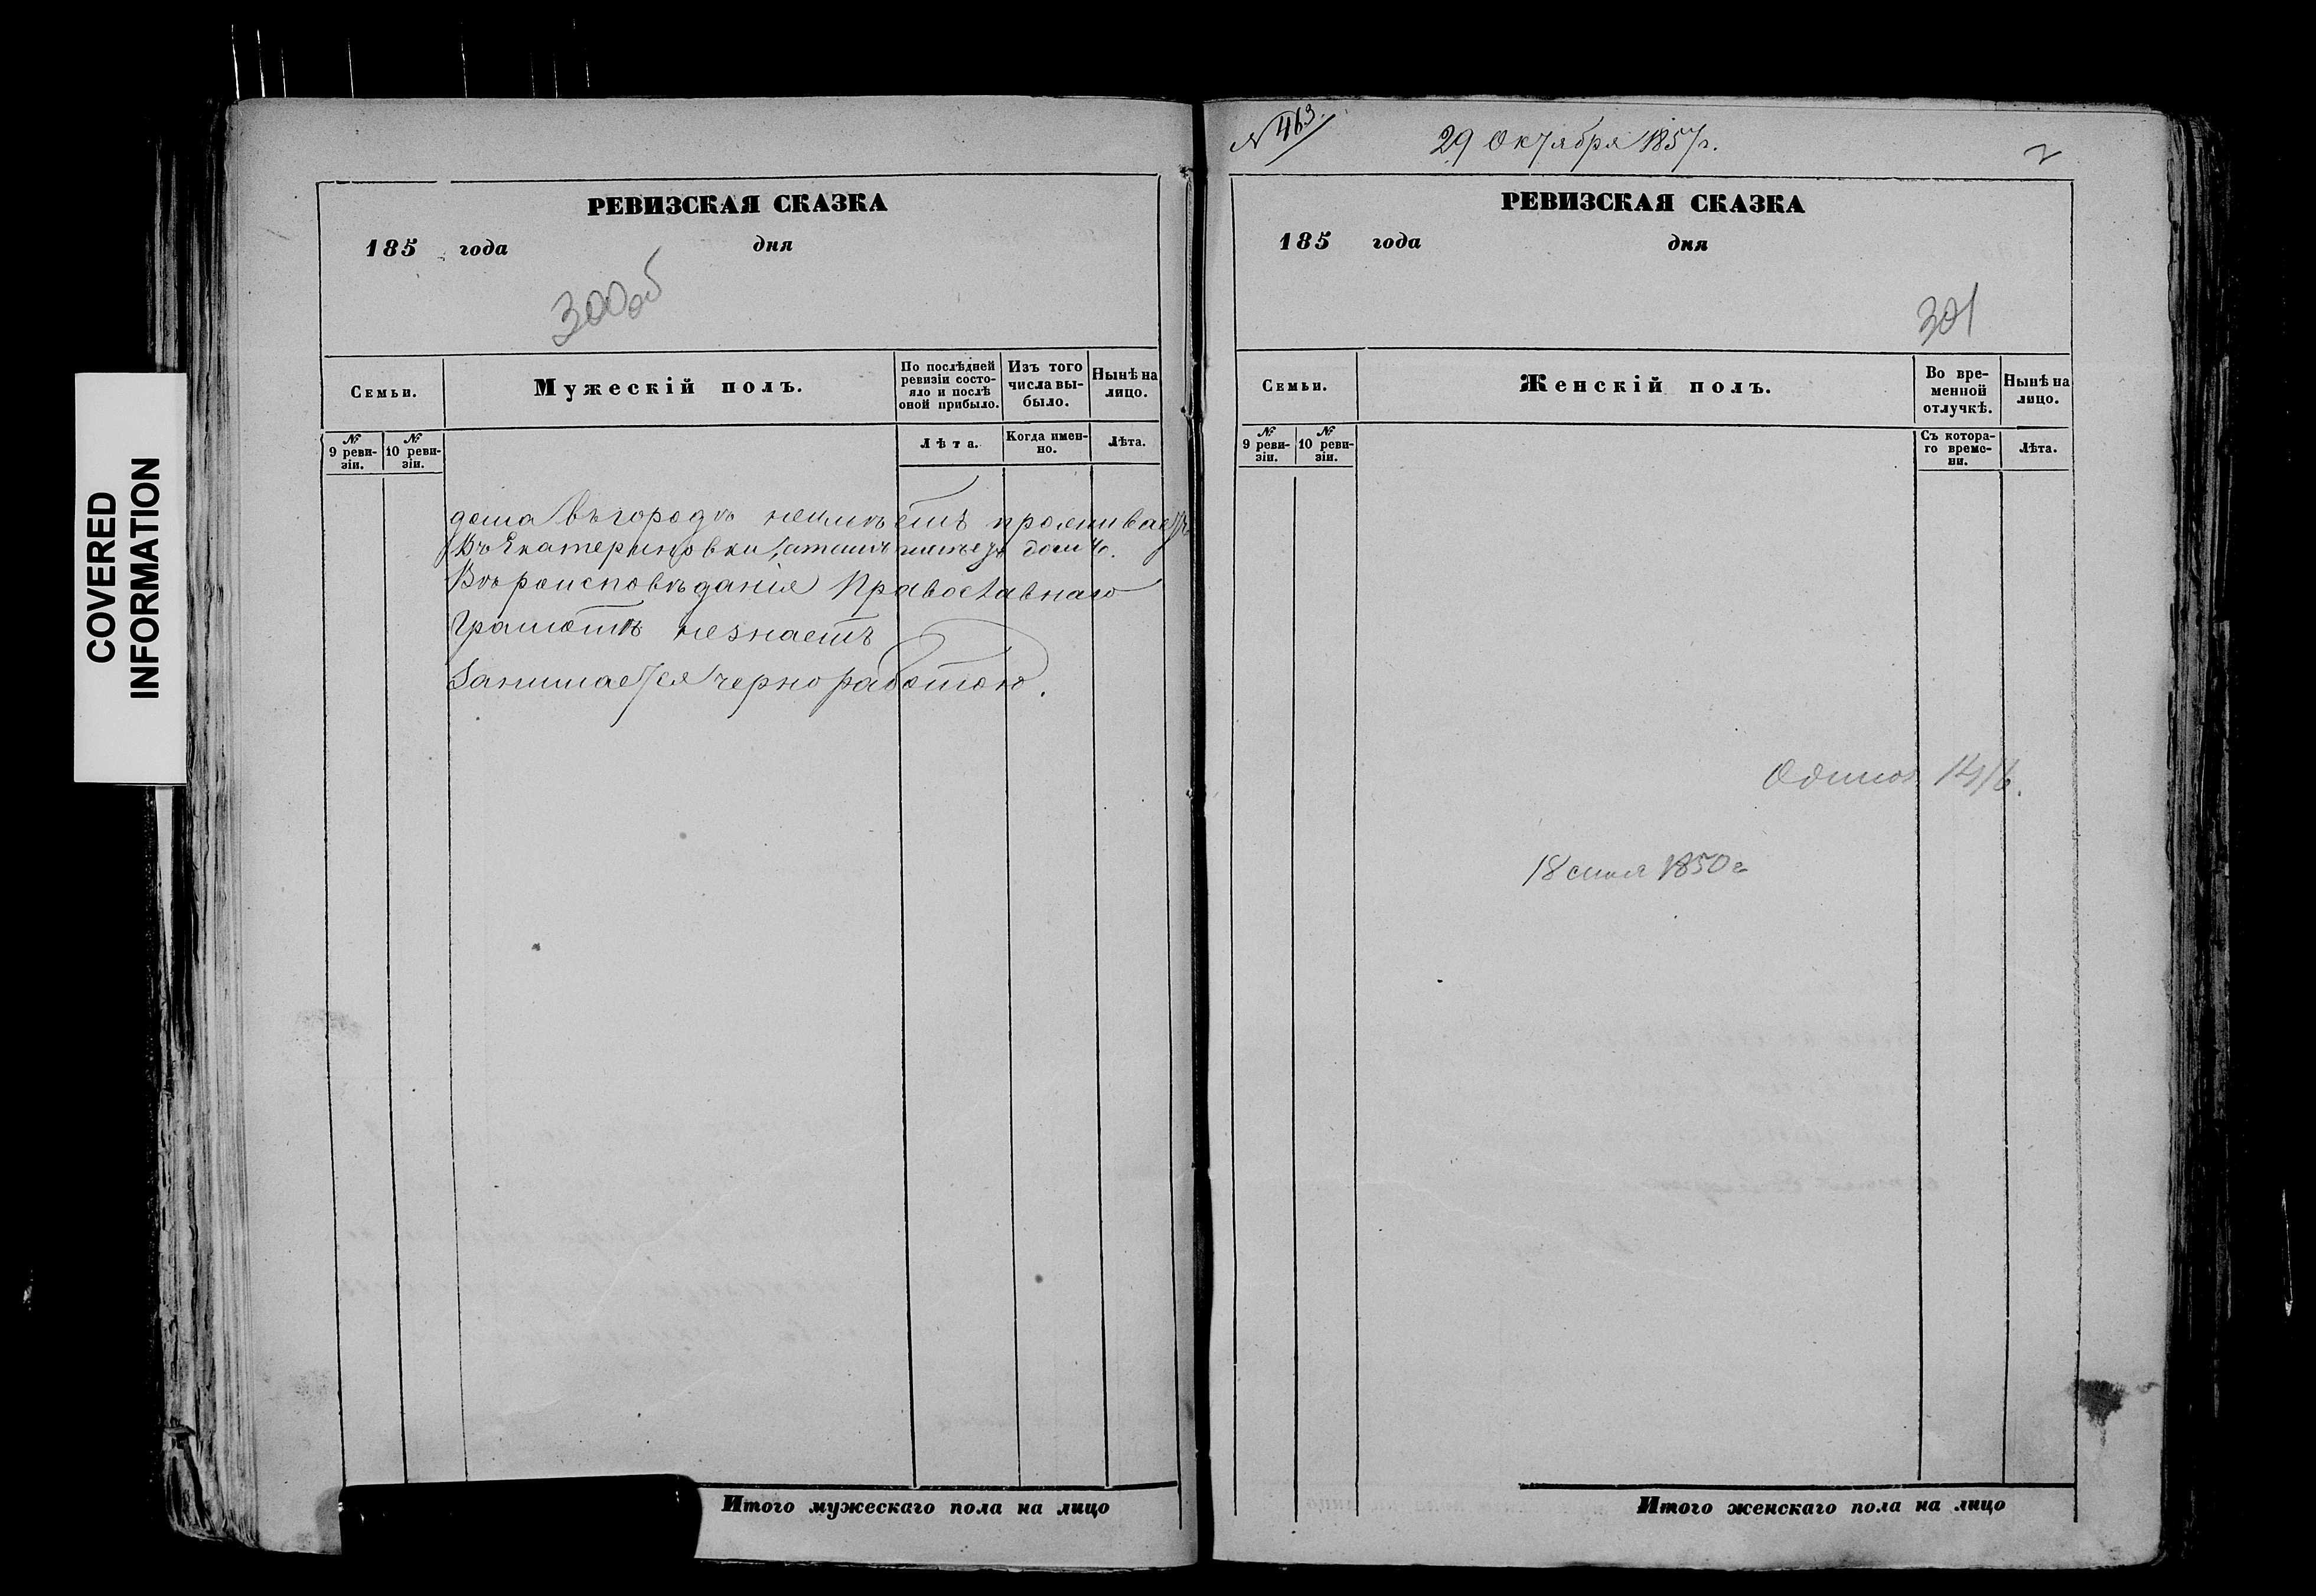 COVERED
INFORMATION
РЕВИЗСКАЯ СКАЗКА
185 года дня
300об
Семьи.
Мужескій полъ.
По послѣдней ревизіи состо-
яло и послѣ
оной прибыло.
Изъ того
числа вы-
было.
Нынѣ на
лицо.
№
9 реви-
зіи.
№
10 реви-
зіи.
Лѣта.
Когда имен-
но.
Лѣта.
дома въ городѣ неимѣетъ проживаетъ
Въ Екатериновки домѣ.
Вѣроисповѣданія Православнаго
Грамотѣ незнаетъ
Занимается черноработою.
Итого мужескаго пола на лицо
N 463.
29 Октября 1857 г.
2
РЕВИЗСКАЯ СКАЗКА
185 года дня
301
Семьи.
Женскій полъ.
Во вре-
менной
отлучкѣ.
Нынѣ на
лицо.
№
9 реви-
зіи.
№
10 реви-
зіи.
Съ котора-
го време-
ни.
Лѣта.
18 1850 г
Итого женскаго пола на лицо